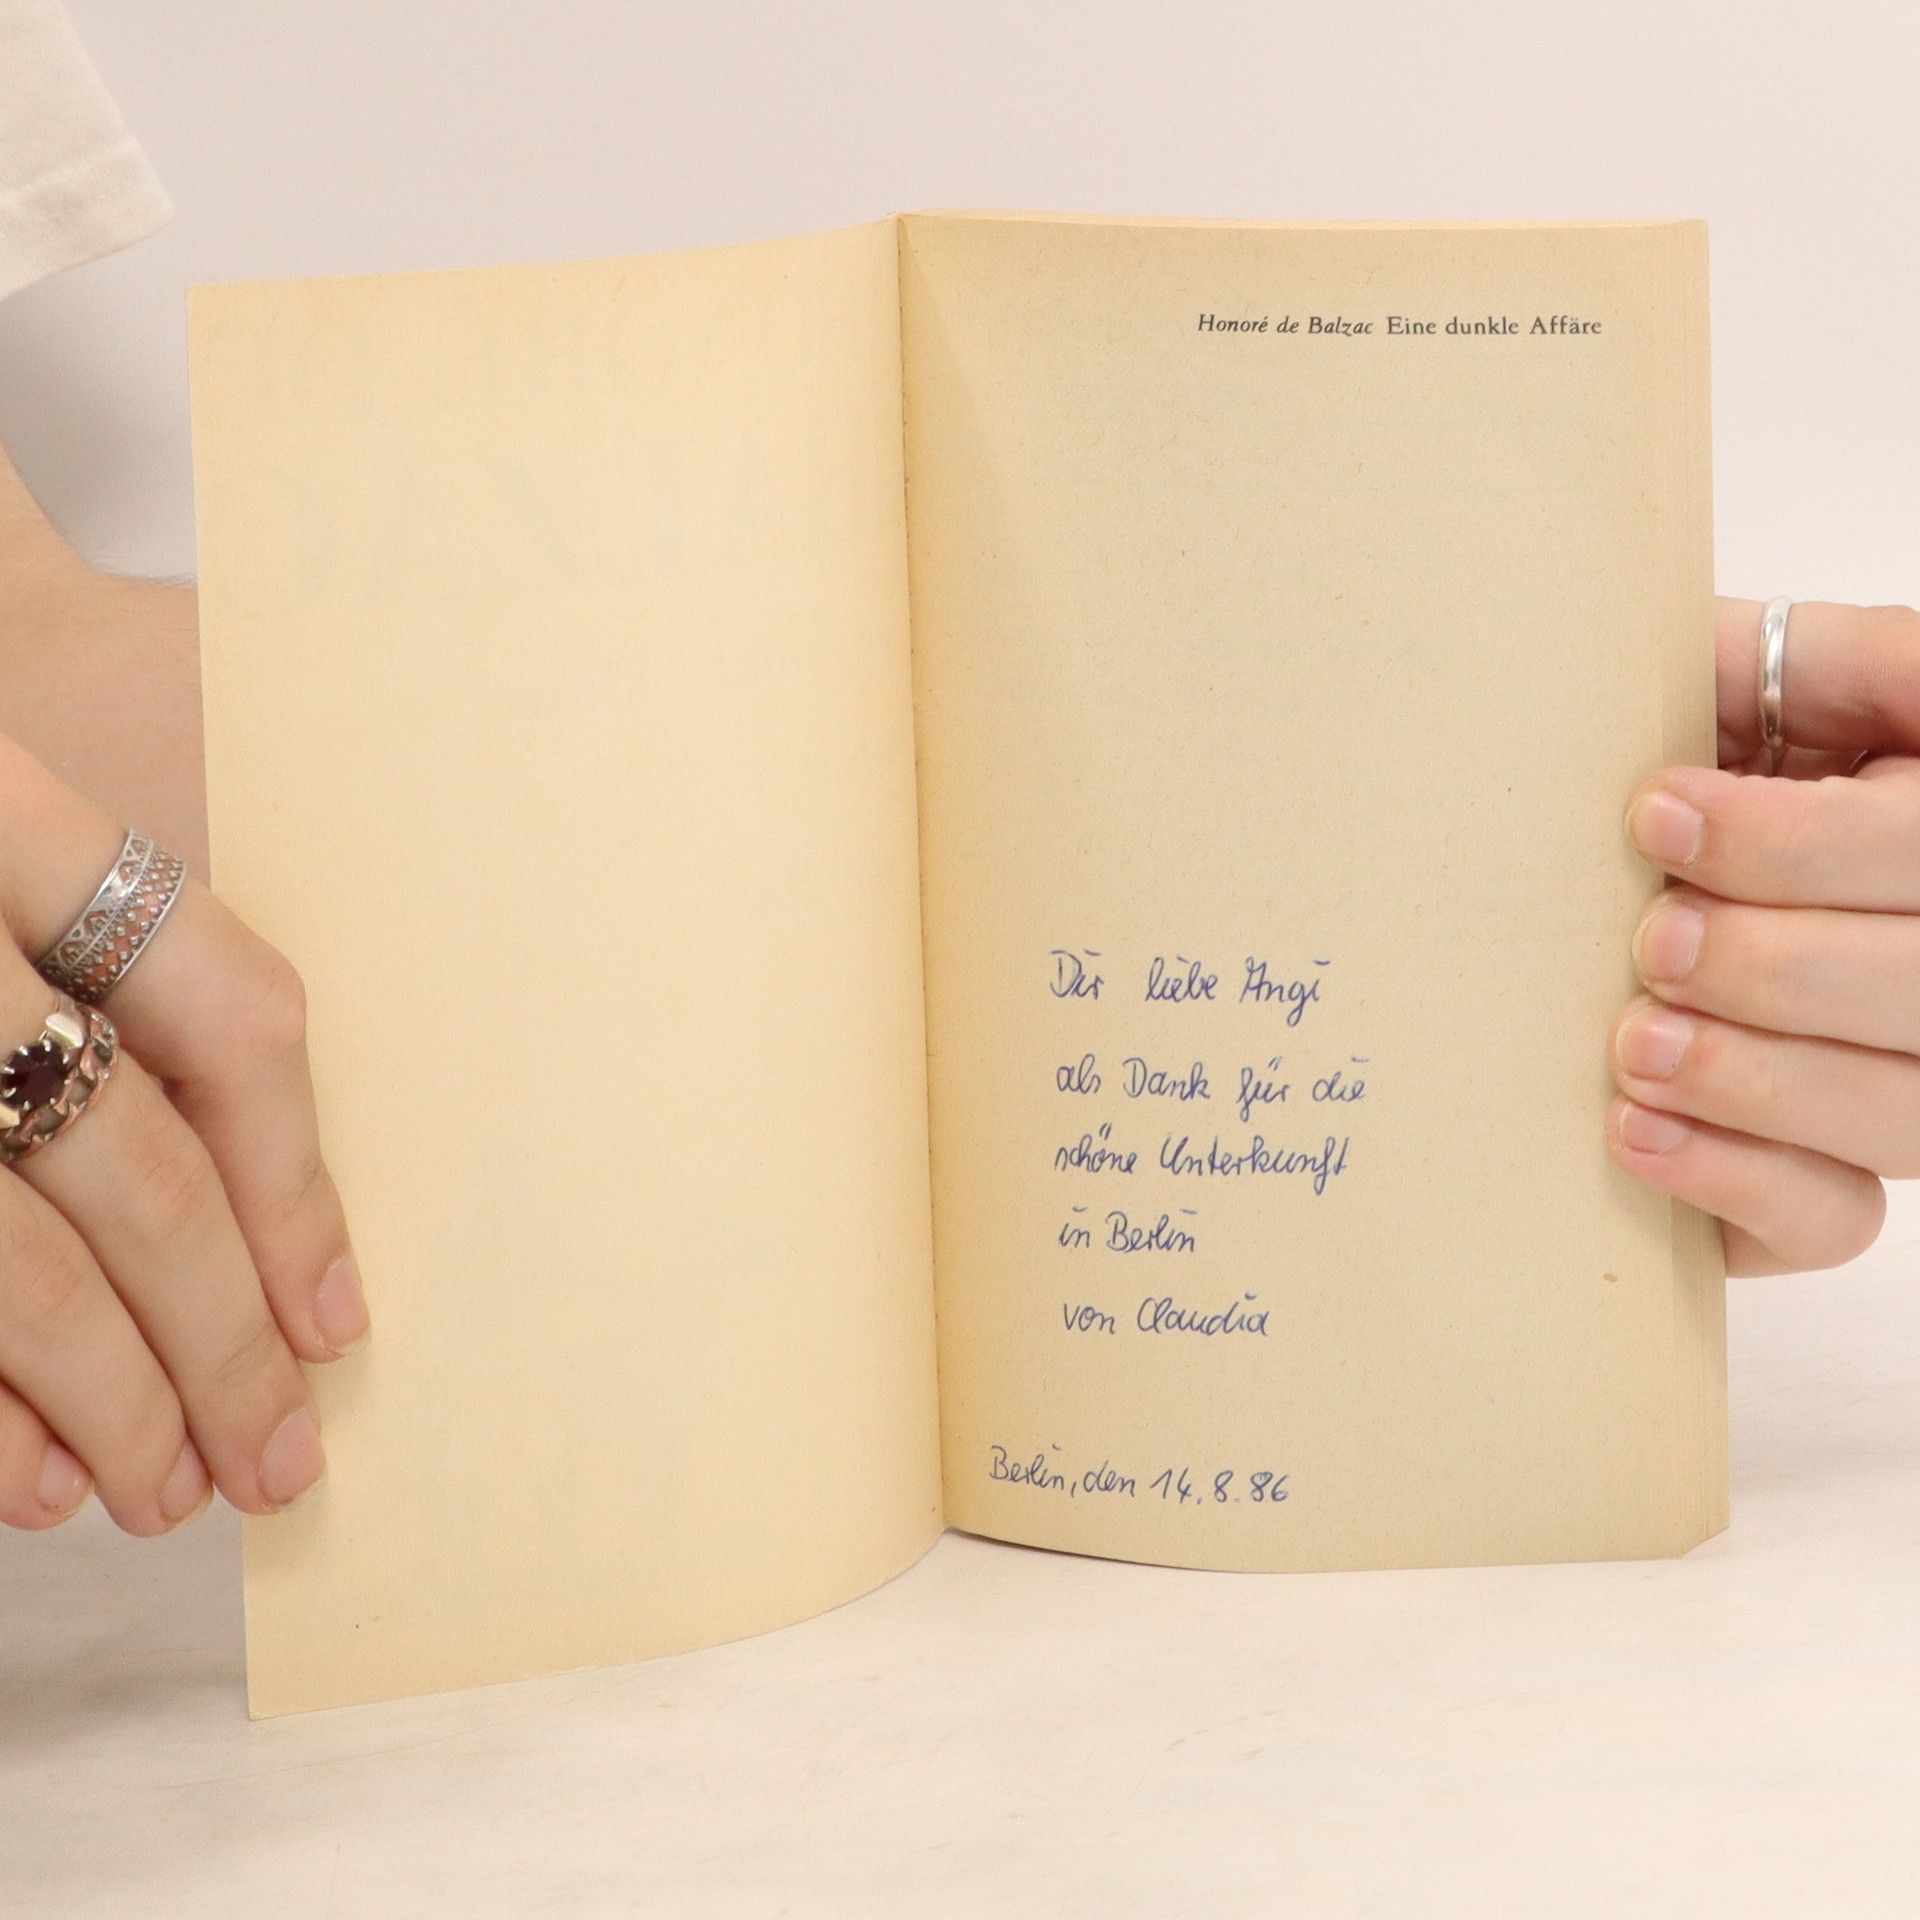 Honoré de Balzac Eine dunkle Affäre
Dir liebe Angi
als Dank für die
schöne Unterkunft
in Berlin
von Claudia
Berlin, den 14.8.86